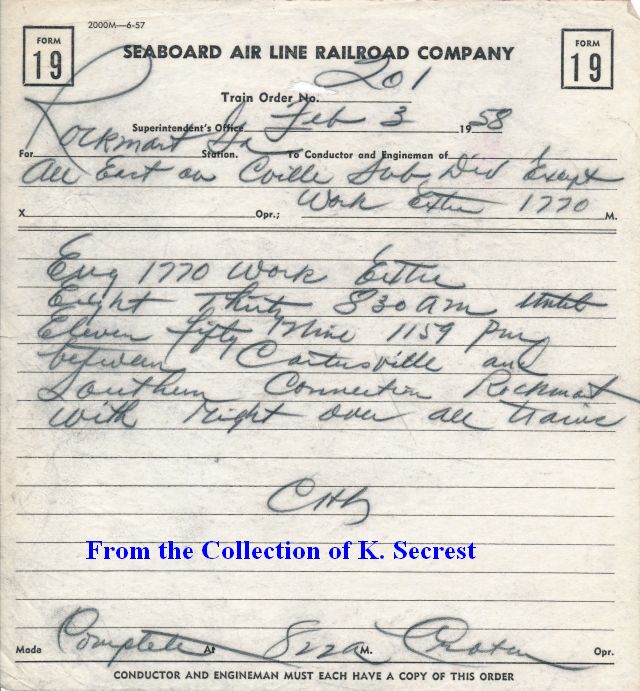 2000M—6-57
FORM 19
FORM 19
SEABOARD AIR LINE RAILROAD COMPANY
Train Order No. 201
Superintendent's Office Feb 3 1958
For Rockmart Ga Station. To Conductor and Engineman of
All East on Cville Sub Div Except
Work Extra 1770
X Opr.; M.
Eng 1770 Work Extra
Eight Thirty 830 am Until
Eleven fifty Nine 1159 pm
between Cartersville and
Southern Connection Rockmart
with right over all trains
From the Collection of K. Secrest
Made Complete At M. Opr.
CONDUCTOR AND ENGINEMAN MUST EACH HAVE A COPY OF THIS ORDER